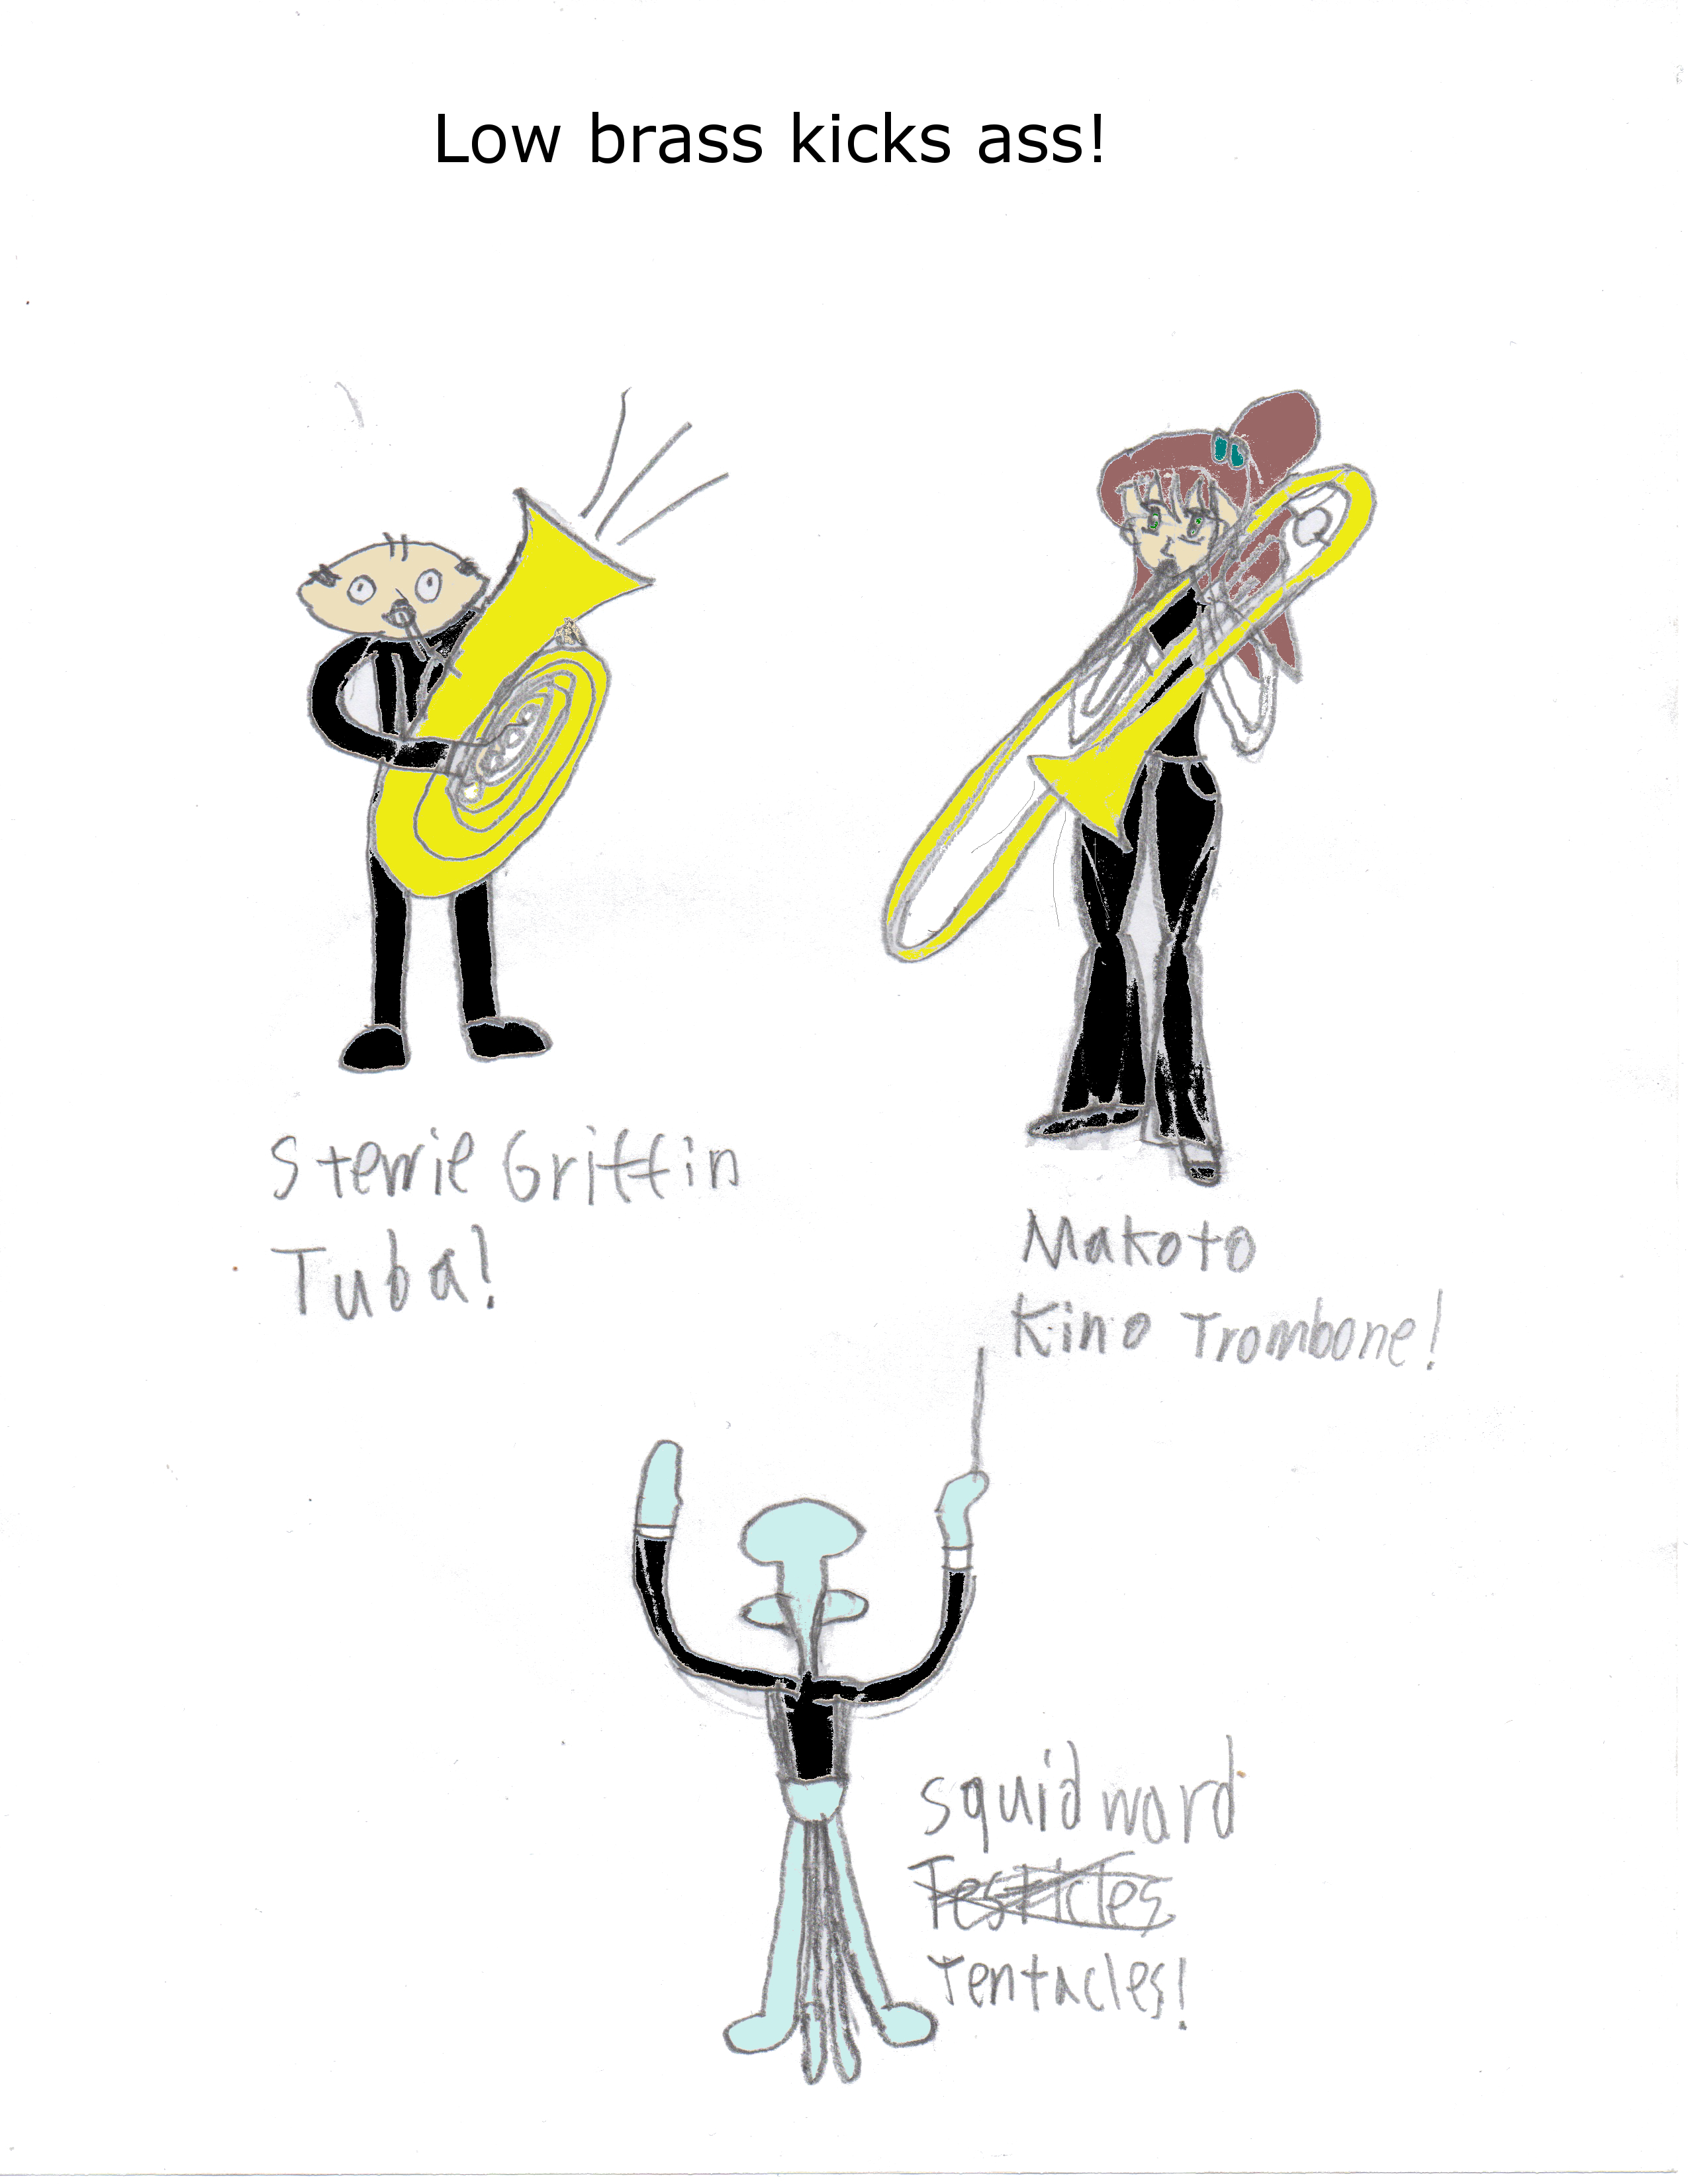 Low brass kicks ass!
Stewie Griffin
Tuba!
Makoto
Kino Trombone!
squidward
Testicles
Tentacles!